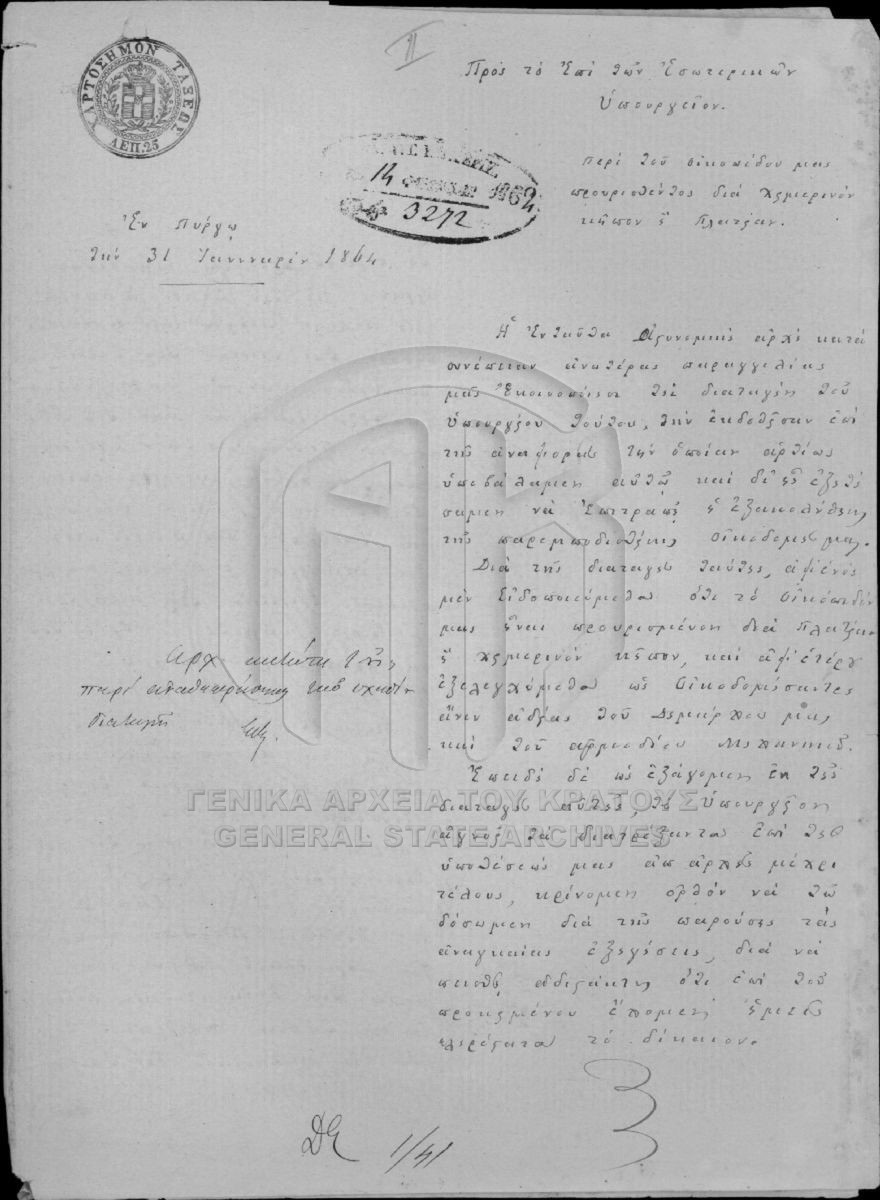 ΧΑΡΤΟΣΗΜΟΝ ΤΑΞΕΩΣ
ΛΕΠ. 25
II
Πρὸς τὸ Ἐπὶ τῶν Ἐσωτερικῶν
Ὑπουργεῖον.
14 1864
3272
Περὶ τοῦ οἰκοπέδου μας
προορισθέντος διὰ χημερινὸν
κῆπον ἢ Πλατζαν.
Ἐν Πύργῳ
τὴν 31 Ἰαννουαρίου 1864.
Ἡ ἐνταῦθα Ἀστυνομικὴ ἀρχὴ κατὰ
συνέπειαν ἀνωτέρας παραγγελίας
μᾶς ἐκοινοποίησε τὴν διαταγὴν τοῦ
Ὑπουργείου τούτου, τὴν ἐκδοθεῖσαν ἐπὶ
τῆς ἀναφορᾶς τὴν ὁποίαν ἀρτίως
ὑπεβάλαμεν αὐτῷ καὶ δι' ἧς ἐζητή
σαμεν νὰ ἐπιτραπῇ ἡ ἐξακολούθησις
τῆς παρεμποδισθείσης οἰκοδομῆς μας.
Διὰ τῆς διαταγῆς ταύτης, ἀφ' ἑνὸς
μὲν εἰδοποιούμεθα ὅτι τὸ οἰκόπεδόν
μας εἶναι προορισμένον διὰ Πλατζαν
ἢ χημερινὸν κῆπον, καὶ ἀφ' ἑτέρου
ἐξελεγχόμεθα ὡς οἰκοδομήσαντες
ἄνευ ἀδείας τοῦ Δημάρχου μας
καὶ τοῦ ἁρμοδίου Μηχανικοῦ.
Ἐπειδὴ δὲ ὡς ἐξάγομεν ἐκ τῆς
διαταγῆς αὐτῆς, τὸ Ὑπουργεῖον
ἀγνοεῖ τὰ διατρέξαντα ἐπὶ τῆς
ὑποθέσεώς μας ἀπ' ἀρχῆς μέχρι
τέλους, κρίνομεν ὀρθὸν νὰ τῷ
δόσωμεν διὰ τῆς παρούσης τὰς
ἀναγκαίας ἐξηγήσεις, διὰ νὰ
πεισθῇ ὅτι ἐπὶ τοῦ
προκειμένου ἔχομεν ἡμεῖς
τὸ δίκαιον.
διαταγῆ
1/41
ΓΕΝΙΚΑ ΑΡΧΕΙΑ ΤΟΥ ΚΡΑΤΟΥΣ
GENERAL STATE ARCHIVES